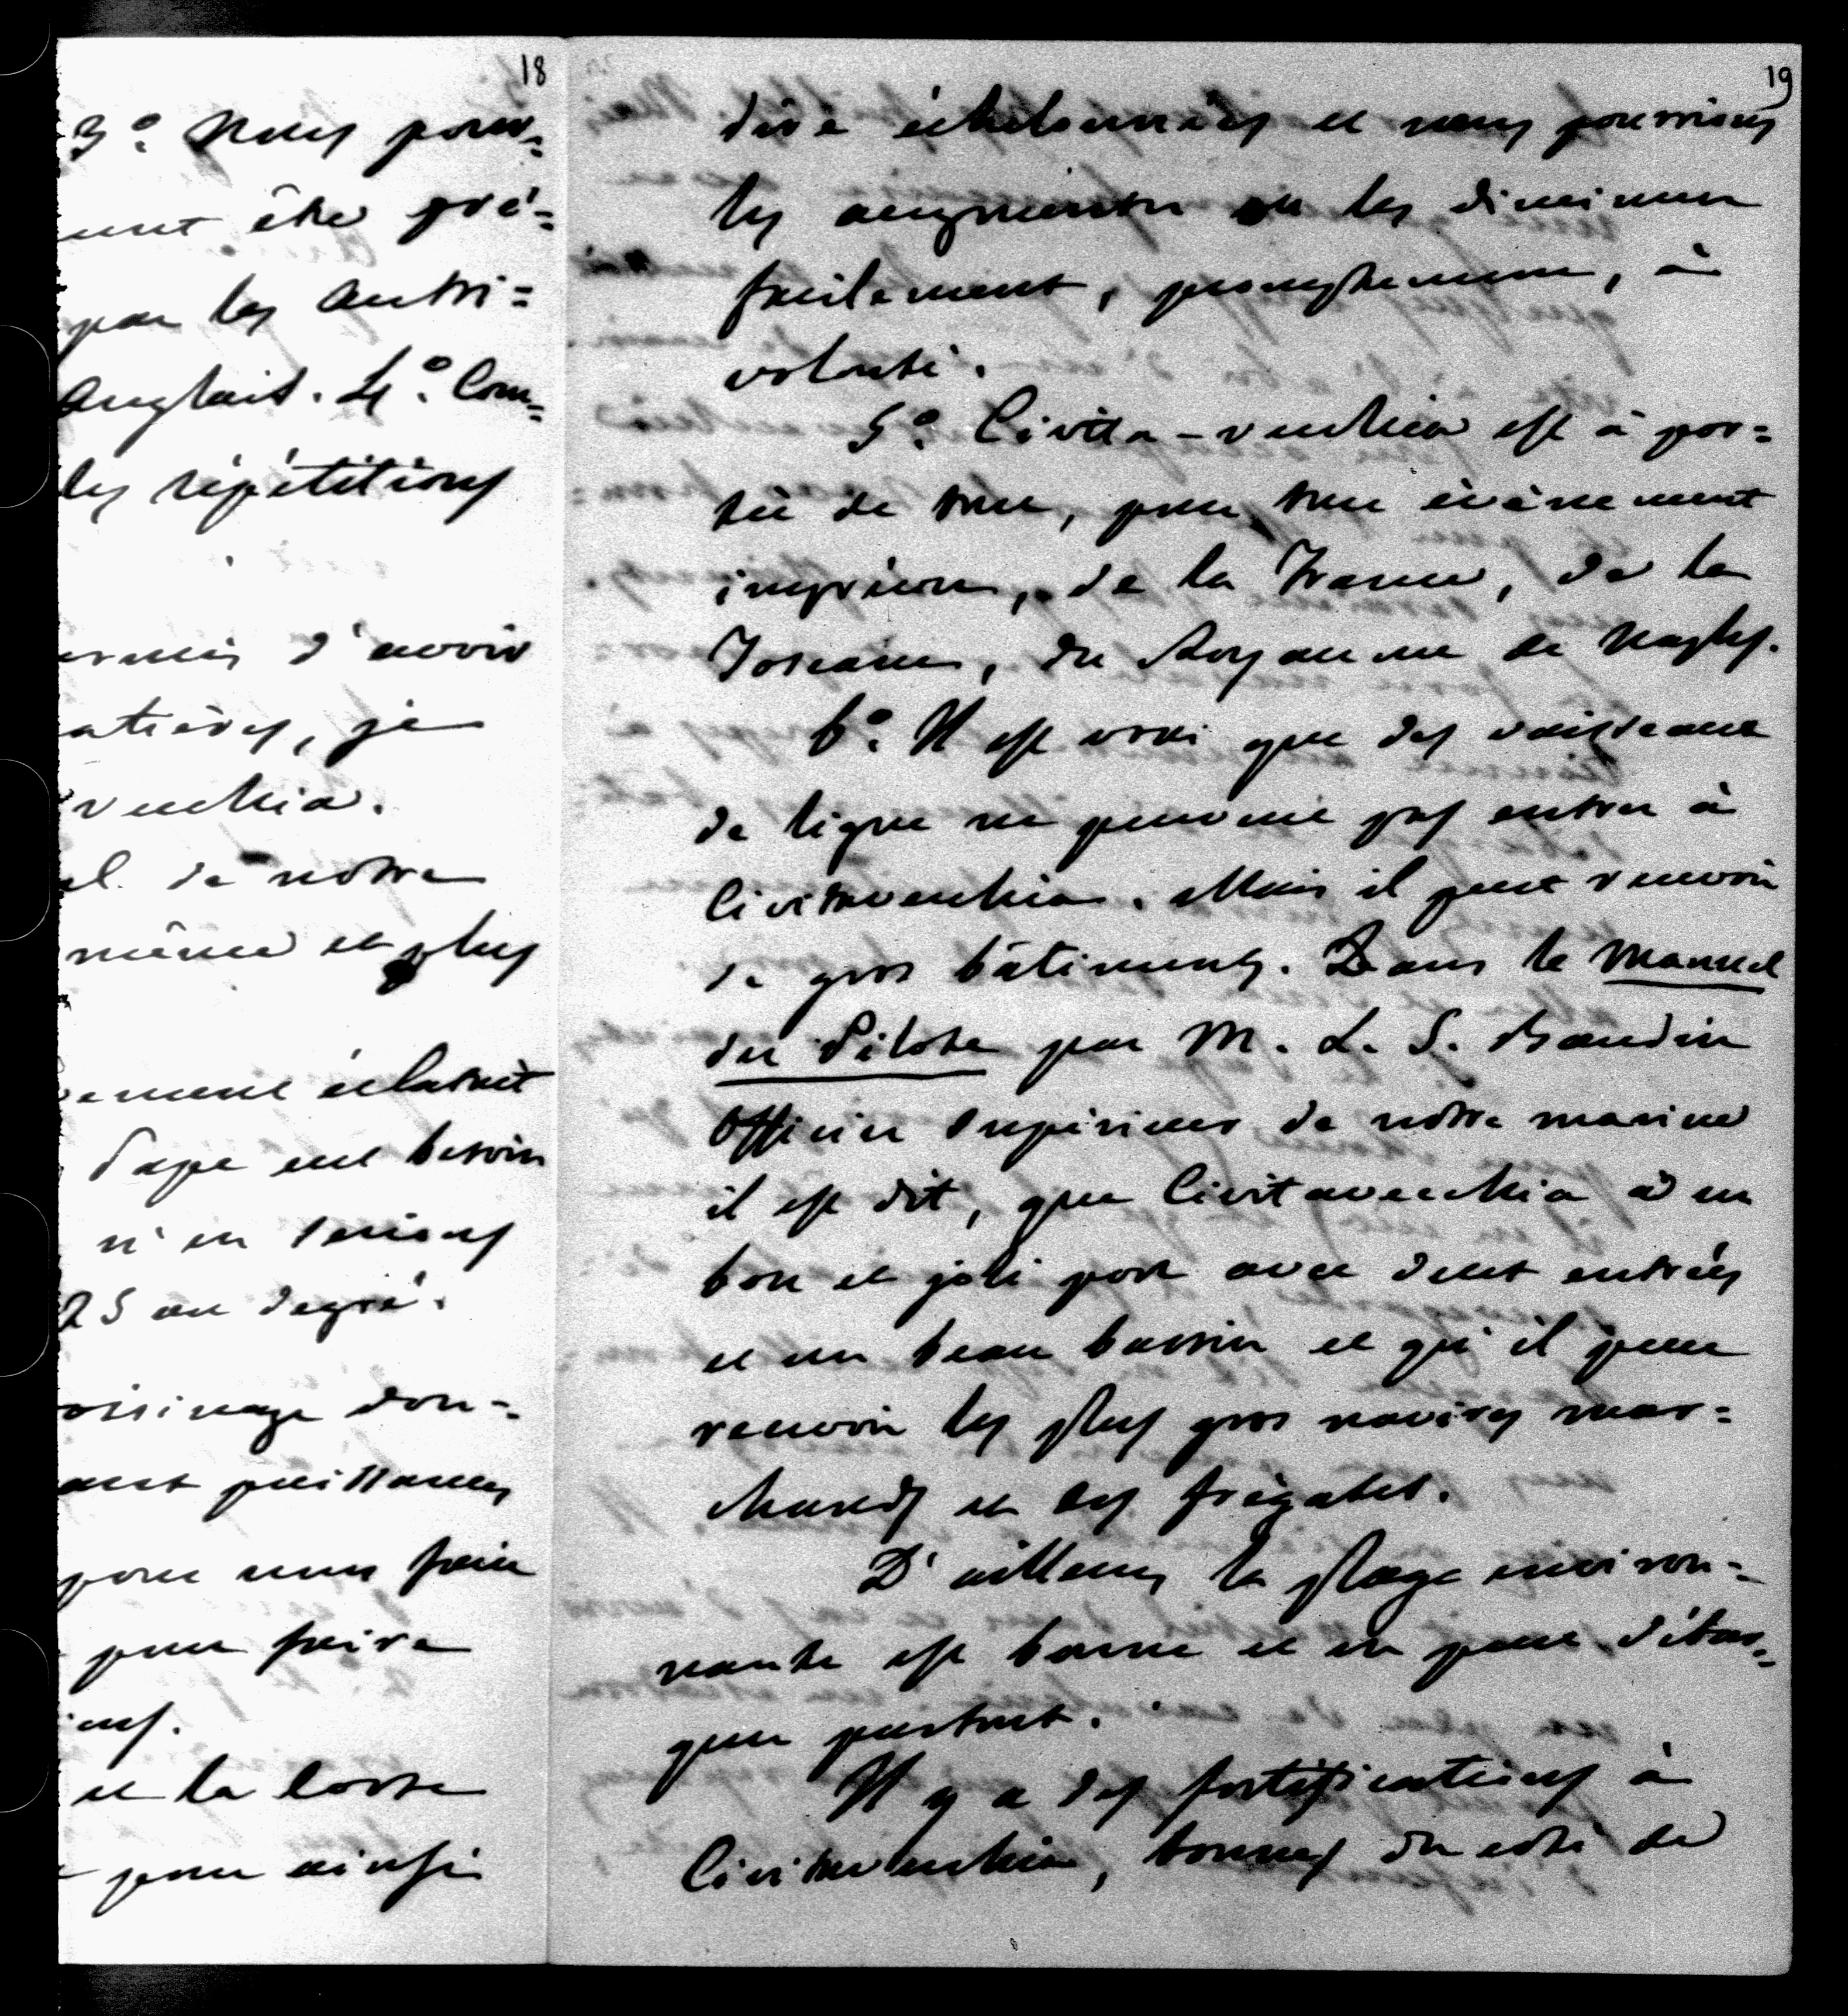 18
3.º Nous pour=
ront être pré=
par les Autri=
Anglais. 4.º Com=
les répétitions
d'avoir
atières, je
vecchia.
de notre
même et plus
ement éclatait
Pape eut besoin
n'en serions
25 au degré.
oisinage don=
puissances
pour nous faire
pour faire
et la Corse
pour ainsi
19
dire échelonnées et nous pourrions
les augmenter ou les diminuer
facilement, promptement, à
volonté.
5.º Civita-vecchia est à por=
tée de tout, pour tout évènement
imprévu, de la France, de la
Toscane, du Royaume de Naples.
6.º Il est vrai que des vaisseaux
de ligne ne peuvent pas entrer à
Civitavecchia. Mais il peut recevoir
de gros bâtiments. Dans le Manuel
du Pilote par M. L. S. Baudin
Officier supérieur de notre marine
il est dit, que Civitavecchia a un
bon et joli port avec deux entrées
et un beau bassin et qu'il peut
recevoir les plus gros navires mar=
chands et des frégates.
D'ailleurs la plage environ=
nante est bonne et on peut débar=
quer partout.
Il y a des fortifications à
Civitavecchia, bonnes du coté de